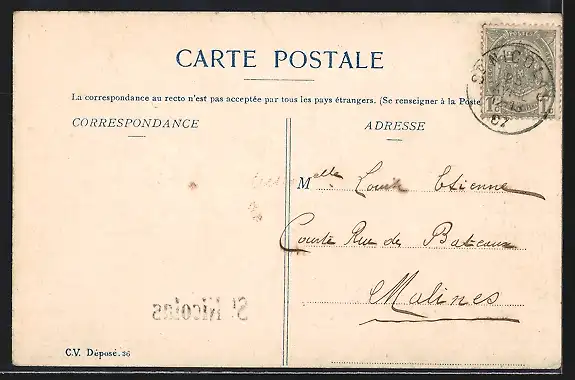 CARTE POSTALE
La correspondance au recto n'est pas acceptée par tous les pays étrangers. (Se renseigner à la Poste
CORRESPONDANCE
ADRESSE
POSTES
ST NICOLAS
07
Melle Etienne
Courte Rue des Bateaux
Malines
St Nicolas
C.V. Déposé. 36